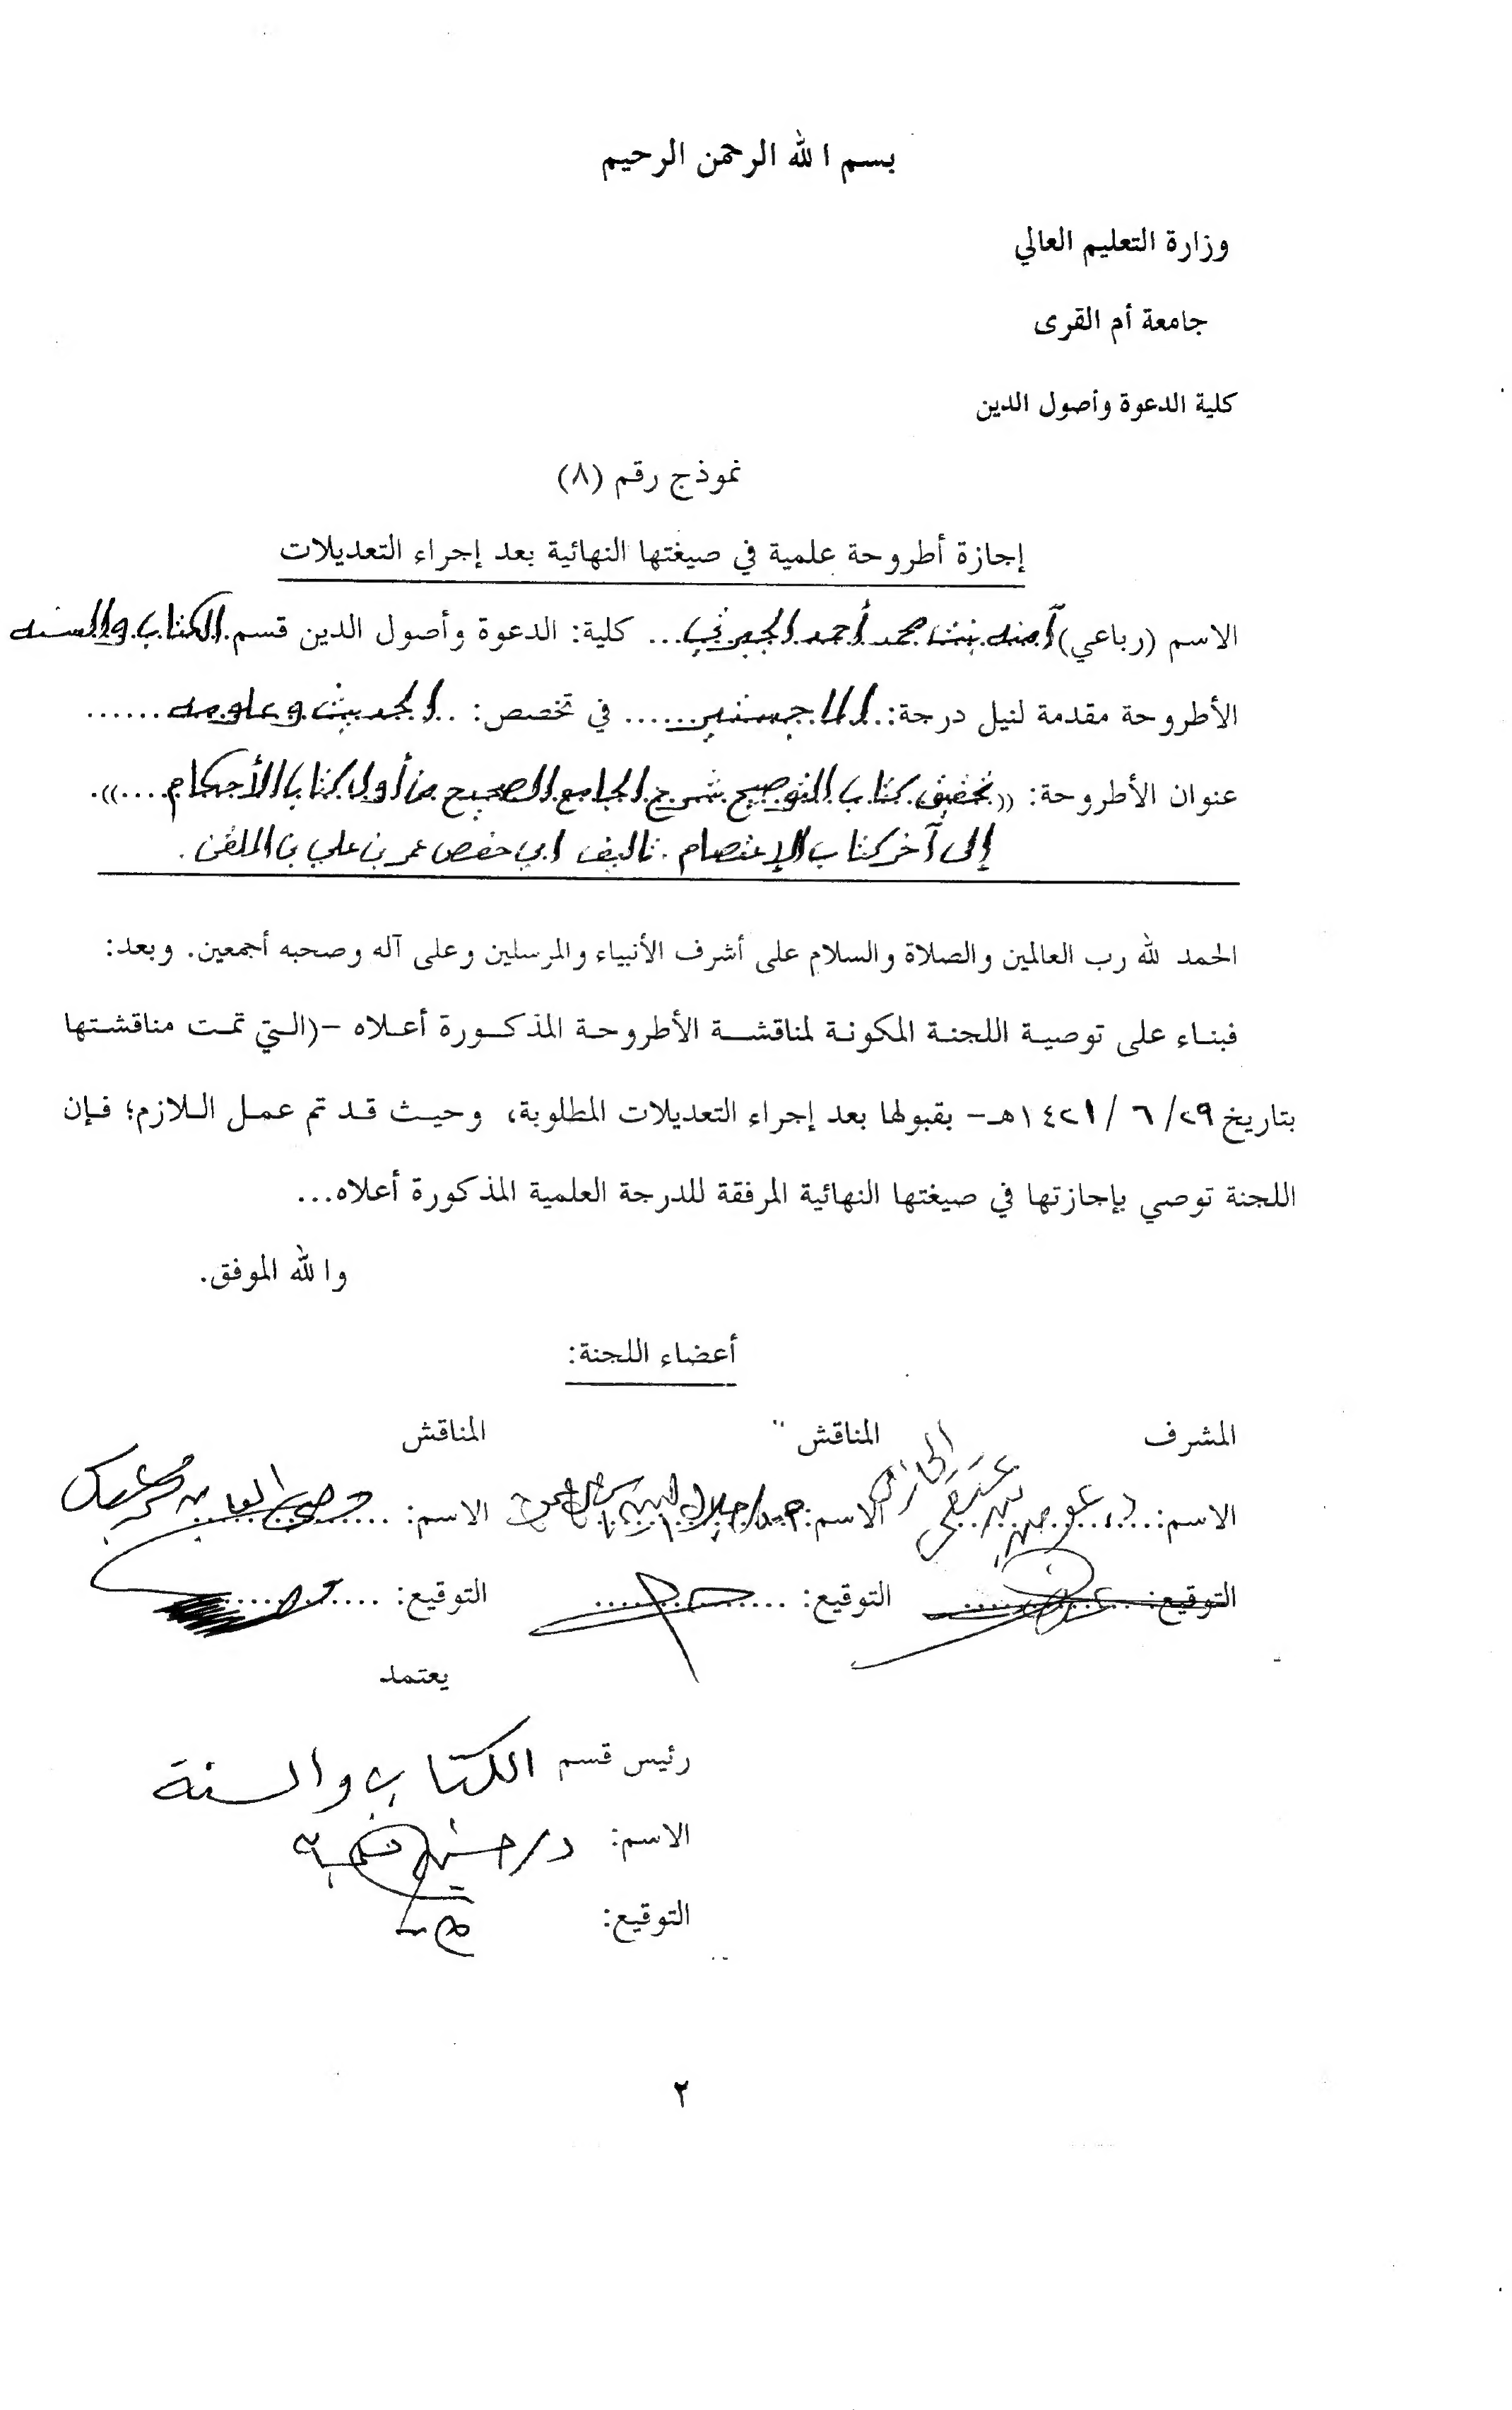 بسم الله الرحمن الرحيم
وزارة التعليم العالي
جامعة أم القرى
كلية الدعوة وأصول الدين
نموذج رقم (٨)
إجازة أطروحة علمية في صيغتها النهائية بعد إجراء التعديلات
الاسم (رباعي) آمنه بنت محمد أحمد ... كلية: الدعوة وأصول الدين قسم الكتاب والسنه
الأطروحة مقدمة لنيل درجة: الماجستير...... في تخصص: ..الحديث وعلومه......
عنوان الأطروحة: ((تحقيق كتاب التوضيح شرح الجامع الصحيح من أول كتاب الأحكام....)).
إلى آخر كتاب الإعتصام . تاليف ابي حفص عمر بن علي بن الملقن .
الحمد لله رب العالمين والصلاة والسلام على أشرف الأنبياء والمرسلين وعلى آله وصحبه أجمعين. وبعد:
فبناء على توصية اللجنة المكونة لمناقشة الأطروحة المذكورة أعلاه -(التي تمت مناقشتها
بتاريخ ٢٩/ ٦ / ١٤٢١هـ- بقبولها بعد إجراء التعديلات المطلوبة، وحيث قد تم عمل اللازم؛ فإن
اللجنة توصي بإجازتها في صيغتها النهائية المرفقة للدرجة العلمية المذكورة أعلاه...
والله الموفق.
أعضاء اللجنة:
المشرف المناقش المناقش
الاسم: د. الاسم: الاسم:
التوقيع: التوقيع: التوقيع:
يعتمد
رئيس قسم الكتاب والسنة
الاسم: د/
التوقيع:
٢